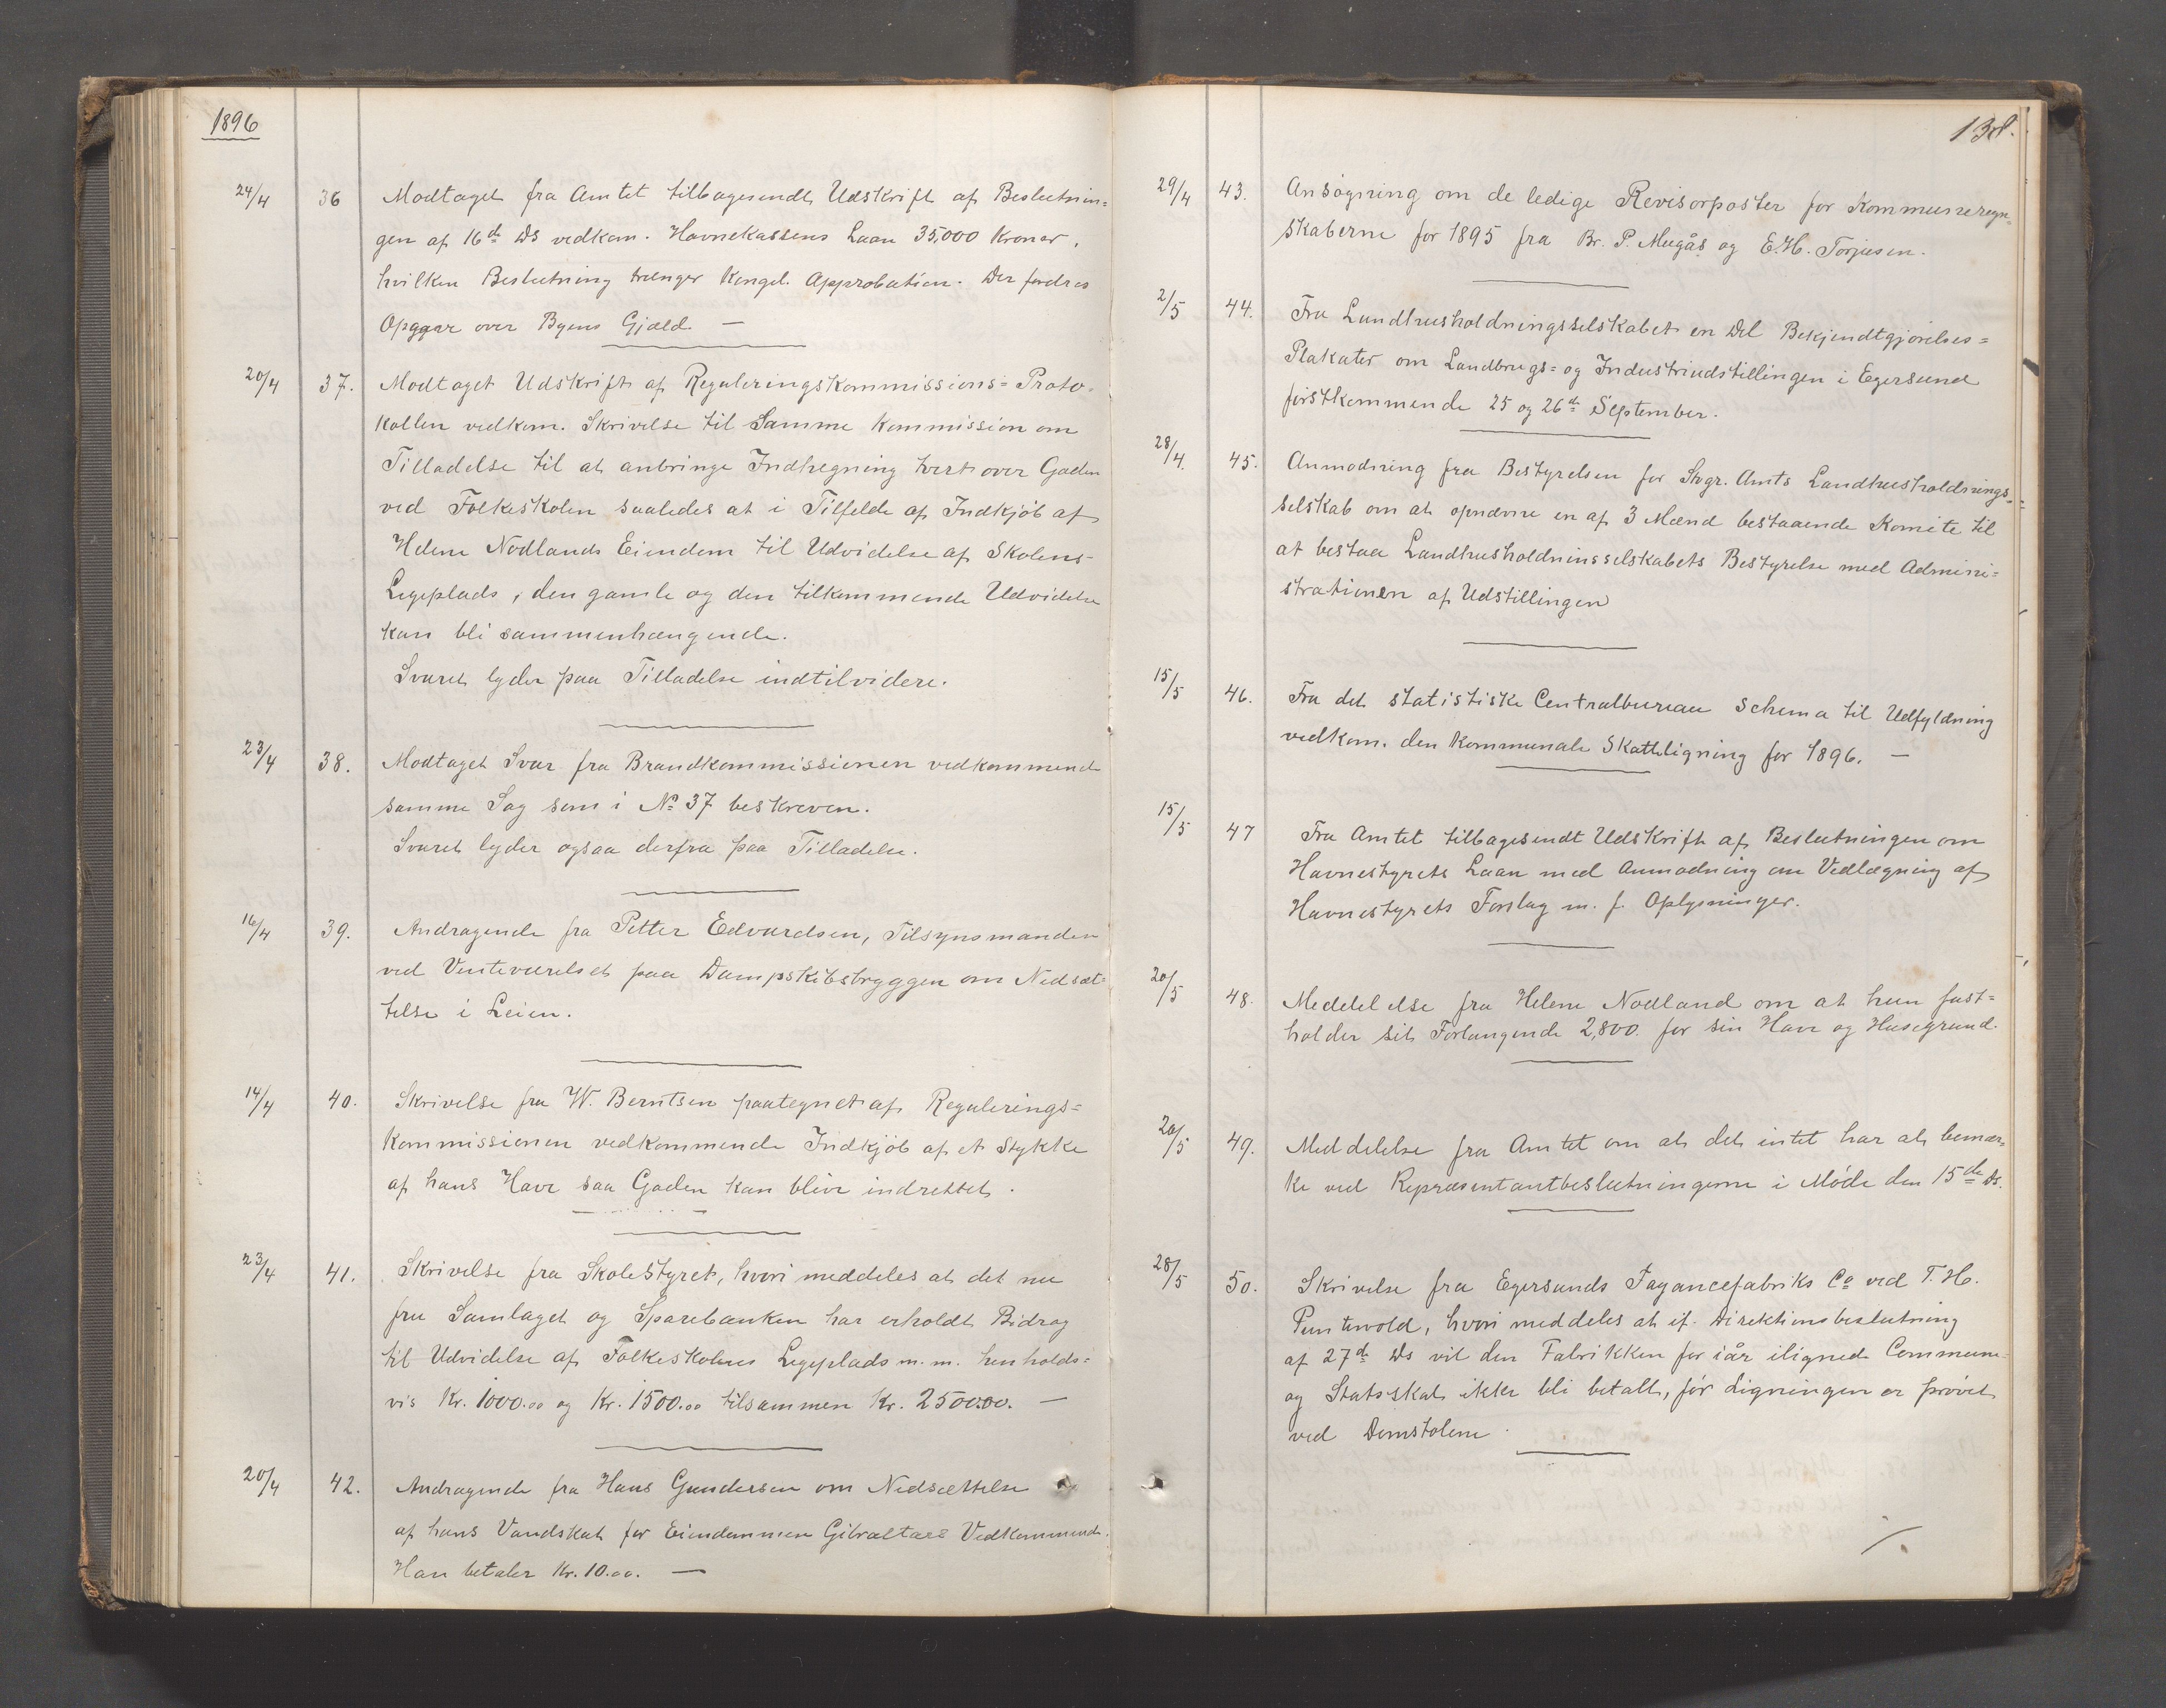 1896
24/4 36 Modtaget fra Amtet tilbagesendt Udskrift af Beslutnin=
gen af 16de Ds vedkom. Havnekassens Laan 35,000 Kroner,
hvilken Beslutning trænger Kongel. Approbation. Der fordres
Opgjør over Byens Gjæld —
20/4 37. Modtaget Udskrift af Reguleringskommissions=Proto-
kollen vedkom. Skrivelse til Samme Kommission om
Tilladelse til at anbringe Indhegning tvert over Gaden
ved Folkeskolen saaledes at i Tilfelde af Indkjøb af
Helene Nodlands Eiendom til Udvidelse af Skolens
Legeplads, den gamle og den tilkommende Udvidelse
kan bli sammenhængende.
Svaret lyder paa Tilladelse indtilvidere.
23/4 38. Modtaget Svar fra Brandkommissionen vedkommende
samme Sag som i No 37 beskreven.
Svaret lyder ogsaa derfra paa Tilladelse.
16/4 39. Andragende fra Petter Edvardsen, Tilsynsmanden
ved Venteværelset paa Dampskibsbryggen om Nedsæt=
telse i Leien.
14/4 40. Skrivelse fra W. Berntsen paategnet af Regulerings=
kommissionen vedkommende Indkjøb af et Stykke
af hans Have saa Gaden kan blive indrettet.
23/4 41. Skrivelse fra Skolestyret, hvori meddeles at det nu
fra Samlaget og Sparebanken har erholdt Bidrag
til Udvidelse af Folkeskolens Legeplads m. m. henholds=
vis Kr. 1000.00 og Kr. 1500.00 tilsammen Kr. 2500.00. —
20/4 42. Andragende fra Hans Gundersen om Nedsættelse
af hans Vandskat for Eiendommen Gibraltars Vedkommende.
Han betaler Kr. 10.00. —
138.
29/4 43. Ansøgning om de ledige Revisorposter for Kommuneregn-
skaberne for 1895 fra Br. P. Mugås og E. H. Torjusen.
2/5 44. Fra Landhusholdningsselskabet en Del Bekjendtgjørelses=
Plakater om Landbrugs= og Industriudstillingen i Egersund
førstkommende 25 og 26de September.
28/4. 45. Anmodning fra Bestyrelsen for Stvgr. Amts Landhusholdnings=
selskab om at opnævne en af 3 Mænd bestaaende Komite til
at bestaa Landhusholdninsselskabets Bestyrelse med Admini=
strationen af Udstillingen
15/5 46. Fra det statistiske Centralbureau Schema til Udfyldning
vedkom. den Kommunale Skatteligning for 1896. —
15/5 47 Fra Amtet tilbagesendt Udskrift af Beslutningen om
Havnestyrets Laan med Anmodning om Vedlægning af
Havnestyrets Forslag m. f. Oplysninger.
20/5 48. Meddelelse fra Helene Nodland om at hun fast=
holder sit Forlangende 2,800 for sin Have og Husegrund.
20/5 49. Meddelelse fra Amtet om at det intet har at bemær-
ke ved Repræsentantbeslutningerne i Møde den 15de ds.
28/5 50. Skrivelse fra Egersunds Fayancefabriks Co ved T. H.
Puntevold, hvori meddeles at if. Direktionsbeslutning
af 27de Ds vil den Fabrikken for iår ilignede Commune-
og Statsskat ikke bli betalt, før Ligningen er prøvet
ved Domstolene.